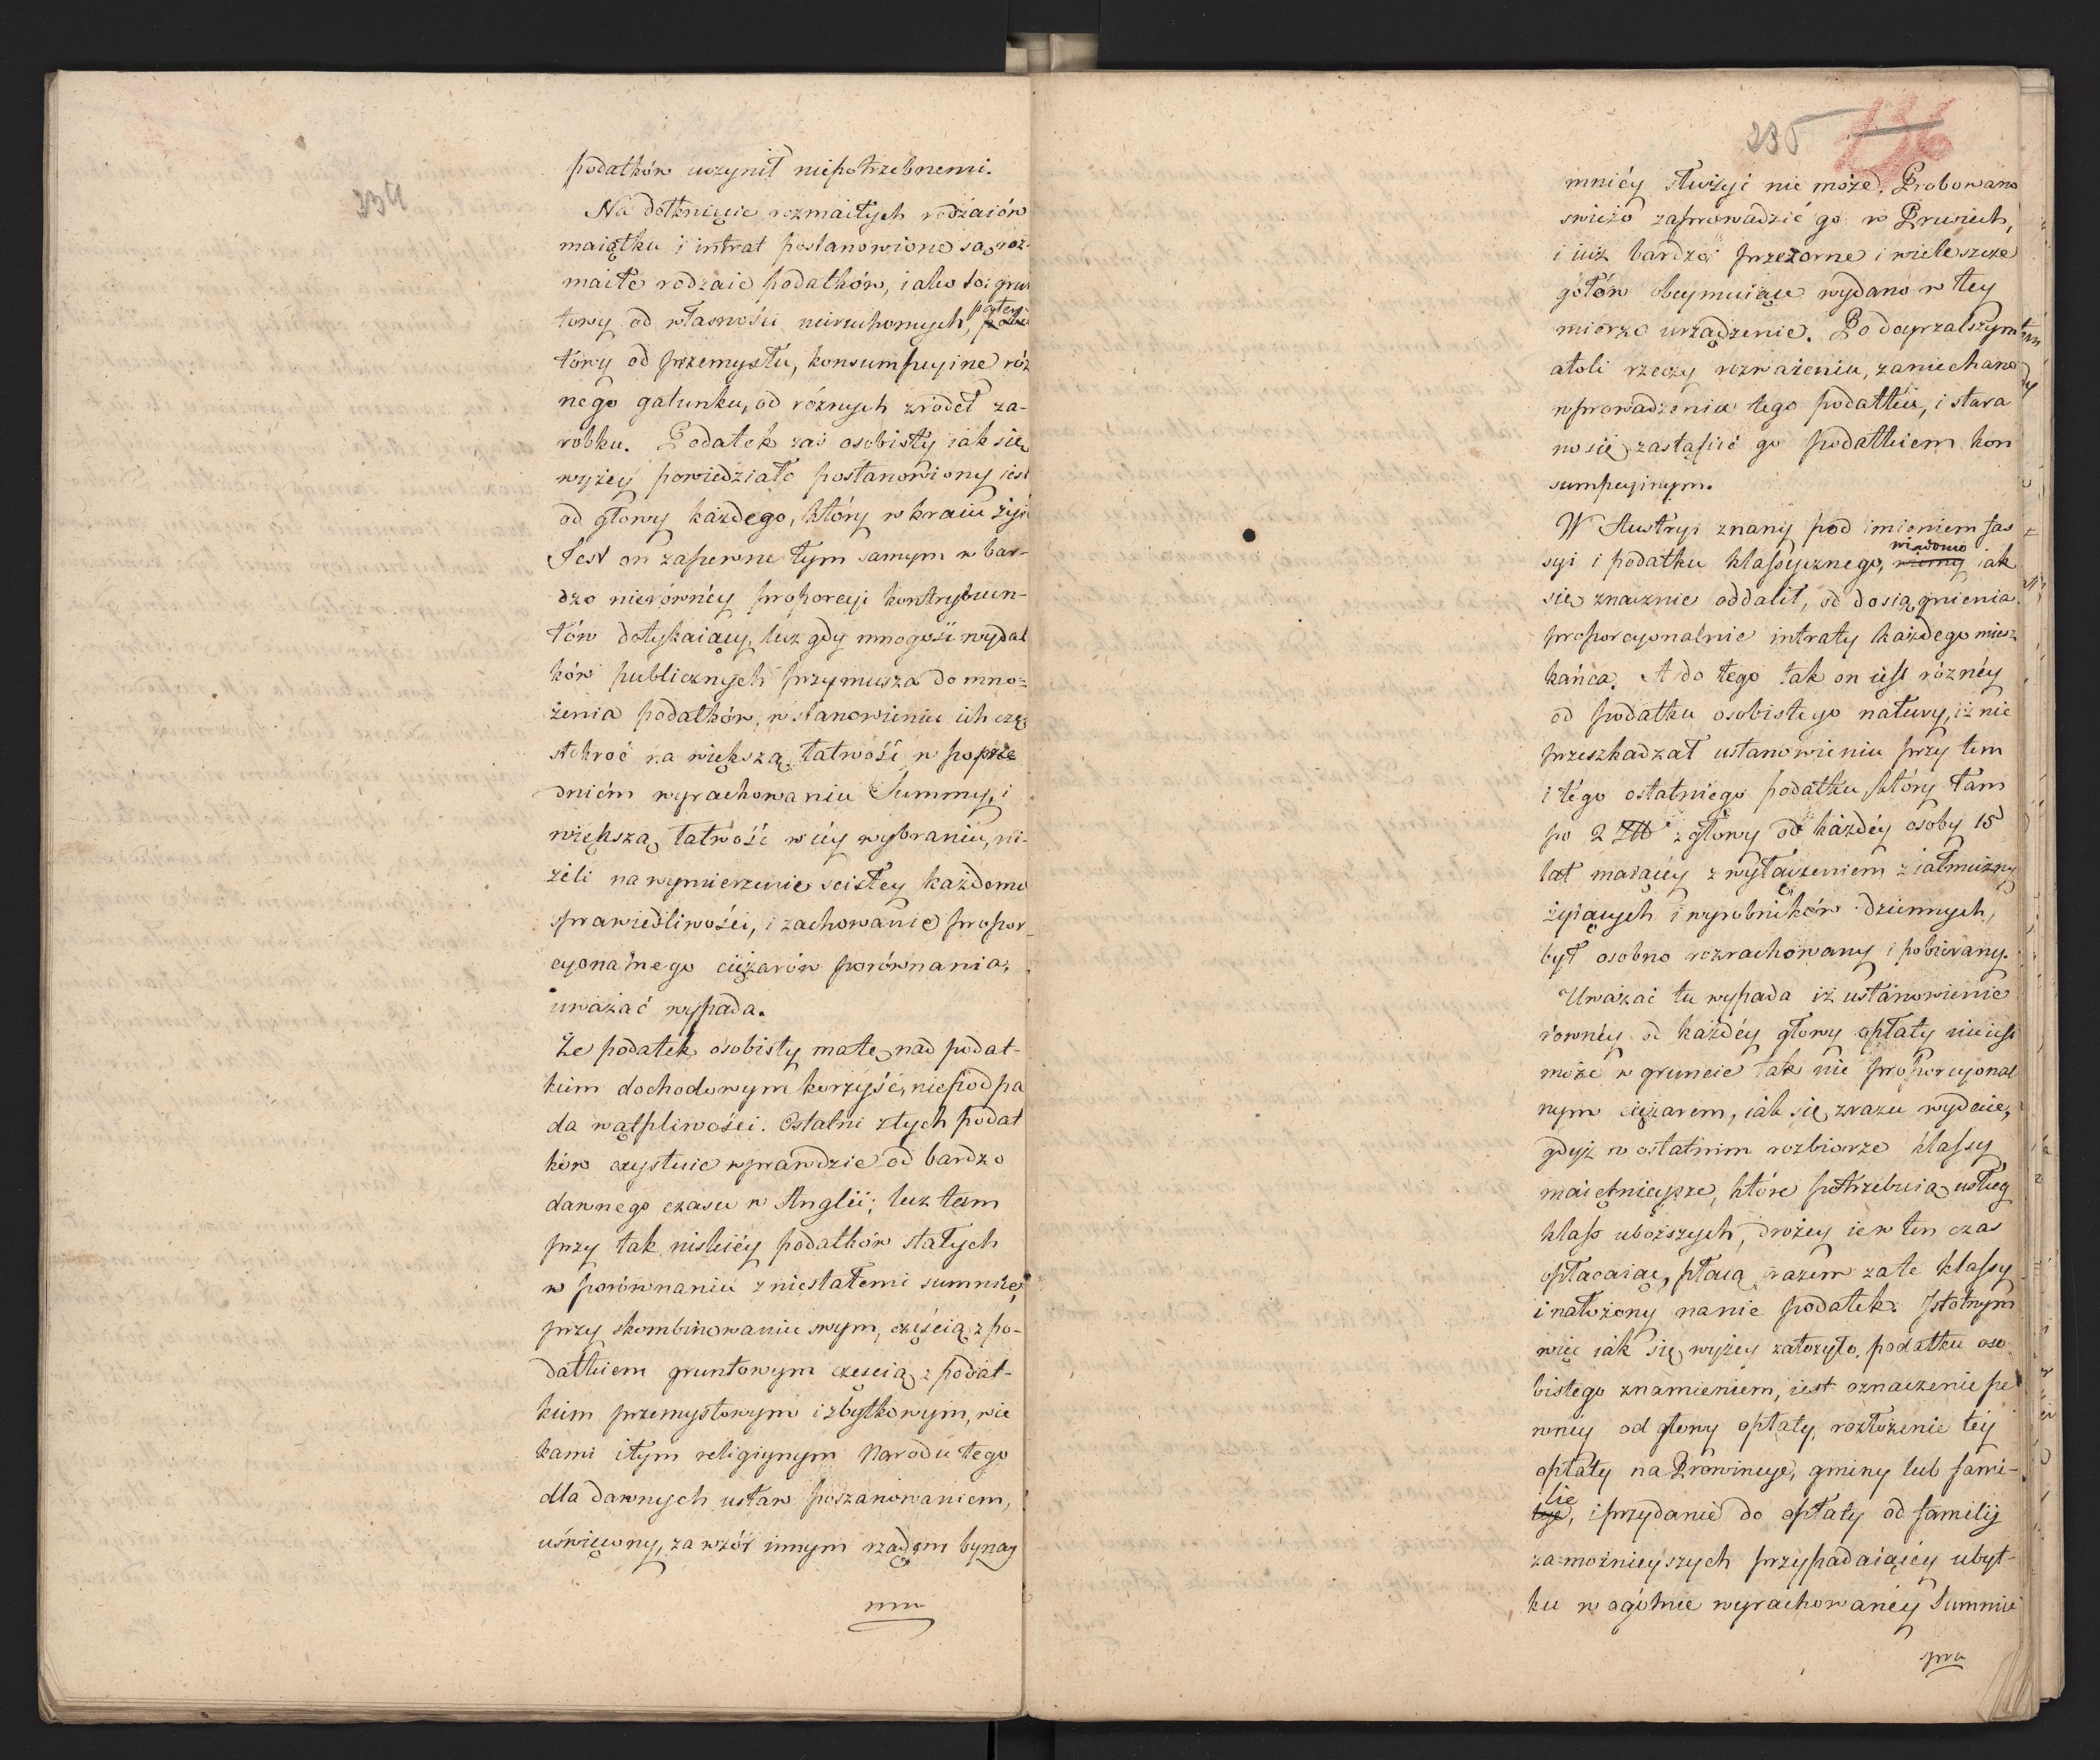 234
podatków uczynił niepotrzebnemi.
Na dotknięcie rozmaitych rodzaiów
maiątku i intrat postanowione są roz-
maite rodzaie podatków, iako to: grun
towy od własności nieruchomych, paten
towy od przemysłu, konsumpcyine róż
nego gatunku, od różnych źródeł za-
robku. Podatek zaś osobisty iak się
wyżey powiedziało postanowiony iest
od głowy każdego, który w kraiu żyie
Jest on zapewne tym samym w bar-
dzo nierównéy proporcyi kontrybuen-
tów dotykaiący, lecz gdy mnogość wydat
ków publicznych przymusza do mno-
żenia podatków, w stanowieniu ich czę
stokroć na większą łatwość w poprze
dniém wyrachowaniu Summy, i
większą łatwość w iéy wybraniu, ni-
żeli na wymierzenie scisłey każdemu
sprawiedliwości, i zachowanie propor-
cyonalnego ciężarów porównania,
uważać wypada.
Że podatek osobisty małe nad podat-
kiem dochodowym korzyści, nie podpa
da wątpliwości. Ostatni z tych podat
ków exystuie wprawdzie od bardzo
dawnego czasu w Anglii; lecz tam
przy tak niskiéy podatków stałych
w porównaniu z niestałemi summie,
przy skombinowaniu swym, częścią z po-
datkiem gruntowym częścią z podat-
kiem przemysłowym i zbytkowym, wie
kami i tym religiynym Narodu tego
dla dawnych ustaw poszanowaniem,
uświęcony, za wzór innym rządom bynay
mni
235 136
mniéy służyć nie może. Probowano
swieżo zaprowadzić go w Prusiech,
i iuż bardzo przezorne i wiele szcze
gółów obeymuiące wydano w tey
mierze urządzenie. Po doyrzalszym
atoli rzeczy rozważeniu, zaniechano
wprowadzenia tego podatku, i stara
no się zastąpić go podatkiem kon
sumpcyinym.
W Austryi znany pod imieniem fas
syi i podatku klassycznego, wiadomo iak
się znacznie oddalił, od dosiągnienia
proporcyonalnie intraty każdego miesz
kańca. A do tego tak on iest róznéy
od podatku osobistego natury, iż nie
przeszkadzał ustanowieniu przy tem
i tégo ostatniego podatku, który tam
po 2 ZłR z głowy od każdéy osoby 15
lat maiącéy z wyłączeniem z iałmużny
żyiących i wyrobników dziennych,
był osobno rozrachowany i pobierany.
Uważać tu wypada iż ustanowienie
równéy od każdéy głowy opłaty nie iest
może w gruncie tak nie proporcyonal
nym ciężarem, iak się zrazu wydaie,
gdyż w ostatnim rozbiorze klassy
maiętnieysze, które potrzebuią usług
klass uboższych, drożey ie w ten czas
opłacaiąc, płacą razem za te klassy
i nałożony na nie podatek. Istotnym
więc iak się wyżey założyło, podatku oso
bistego znamieniem, iest oznaczenie pe
wnéy od głowy opłaty, rozłożenie téy
opłaty na Prowincye, gminy lub fami-
lie, i przydanie do opłaty od familiy
zamożnieyszych przypadaiącéy ubyt-
ku w ogólnie wyrachowanéy Summie
pra